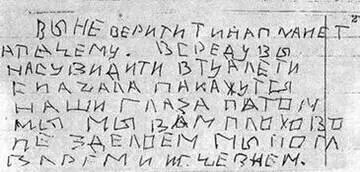 ВЫ НЕ ВЕРИТИ ТИНАПЛАНЕТ
АПАЧЕМУ. ВСРЕДУ ВЫ
НАСУВИДИТИ ВТУАЛЕТИ
СНАЧАЛА ПАКАЖУТСЯ
НАШИ ГЛАЗА ПАТОМ
МЫ МЫ ВАМ ПЛОХОВО
НЕ ЗДЕЛОЕМ МЫ ПОГЛ
ВАРЕМ И ИСЧЕЗНЕМ.